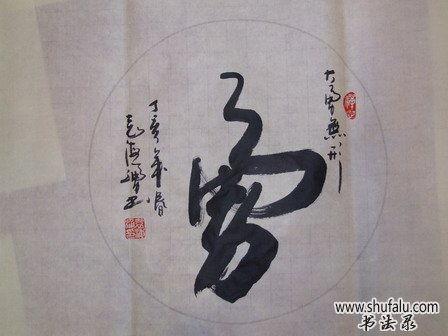 大勇無形
勇
丁亥年春
書
www.shufalu.com
书法录